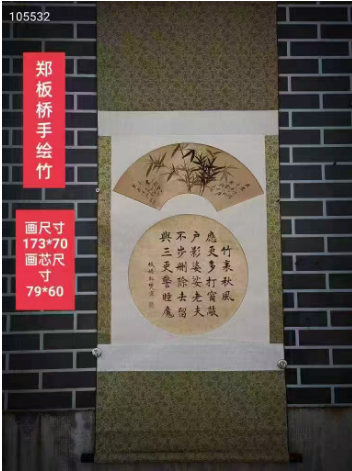 105532
郑板桥手绘竹
画尺寸
173*70
画芯尺
寸
79*60
竹裏秋風
應更多打窗敲
户影婆娑老夫
不步删除去留
與三更警睡魔